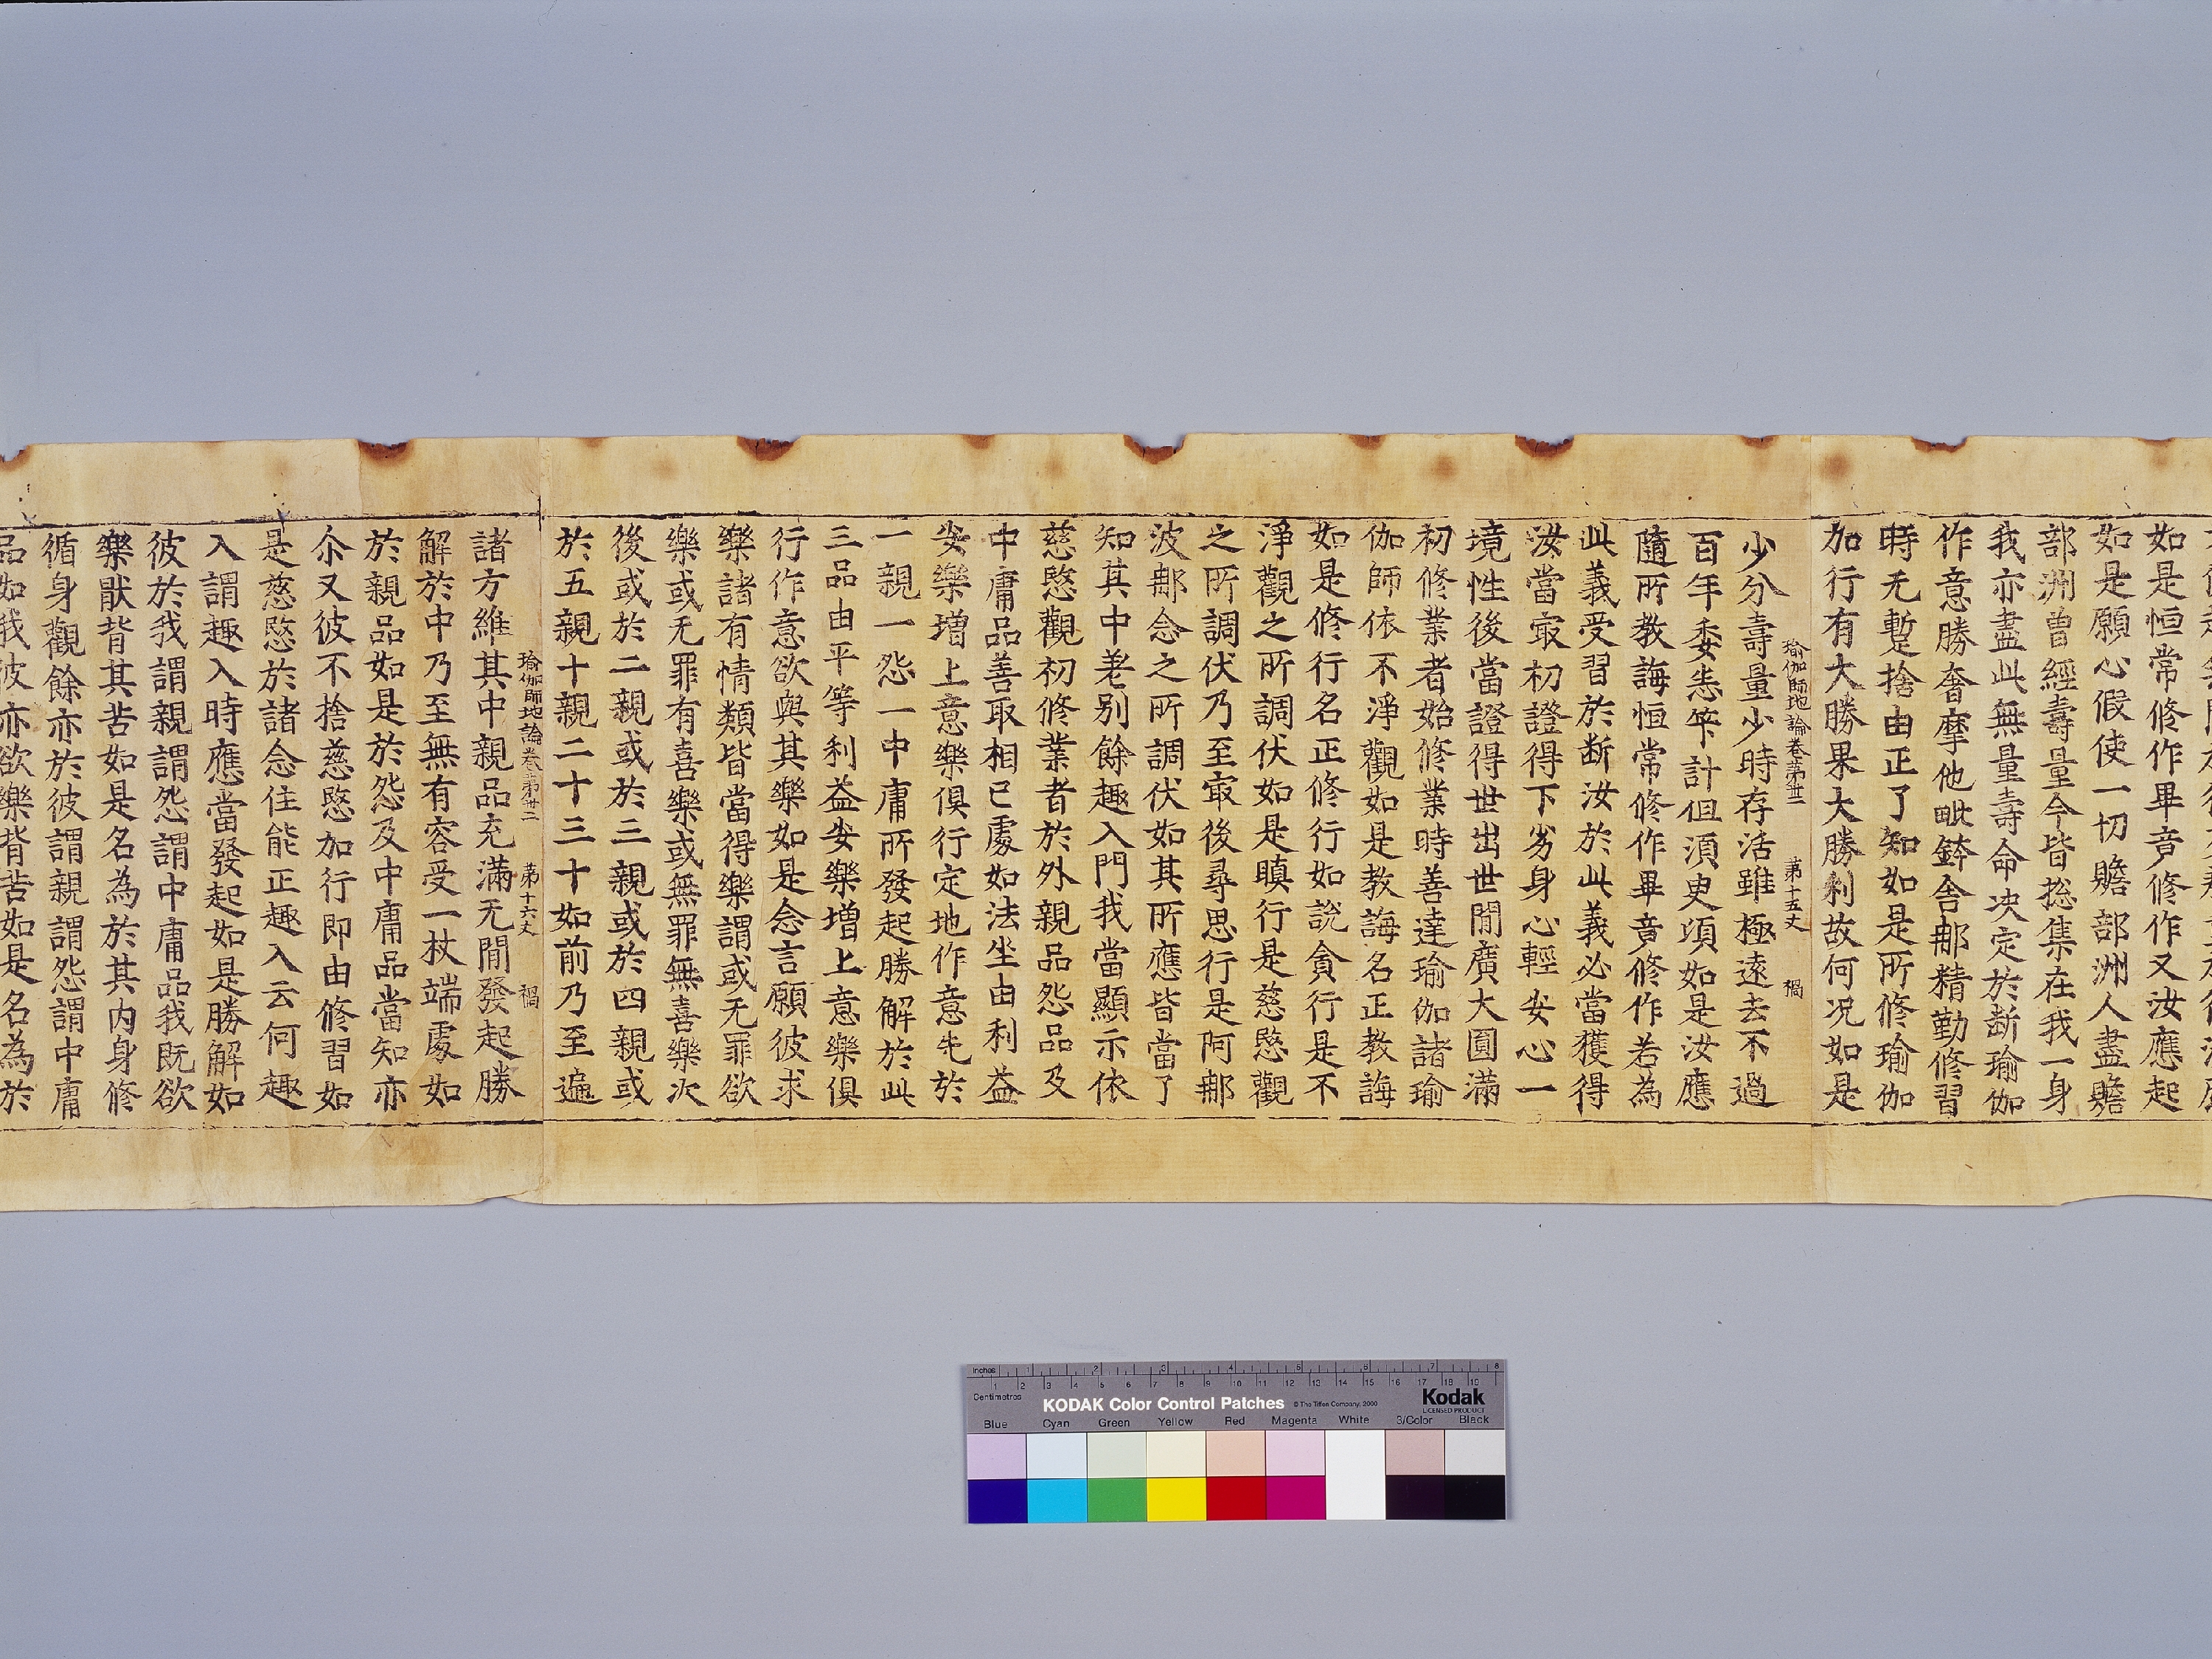 如是恒常修作畢竟修作又汝應起
如是願心假使一切贍部洲人盡贍
部洲曾經壽量今皆捴集在我一身
我亦盡此無量壽命決定於断瑜伽
作意勝奢摩他毗鉢舎那精勤修習
時无暫捨由正了知如是所修瑜伽
加行有大勝果大勝利故何况如是
瑜伽師地論卷第卅二　第十五丈　禍
少分壽量少時存活雖極遠去不過
百年委悉筭計但須臾頃如是汝應
隨所教誨恒常修作畢竟修作若為
此義受習於断汝於此義必當獲得
汝當㝡初證得下劣身心輕安心一
境性後當證得世出世間廣大圓滿
初修業者始修業時善達瑜伽諸瑜
伽師依不淨觀如是教誨名正教誨
如是修行名正修行如說貪行是不
淨觀之所調伏如是瞋行是慈愍觀
之所調伏乃至㝡後尋思行是阿那
波那念之所調伏如其所應皆當了
知其中差别餘趣入門我當顯示依
慈愍觀初修業者於外親品怨品及
中庸品善取相已處如法坐由利益
安樂増上意樂俱行定地作意先於
一親一怨一中庸所發起勝解於此
三品由平等利益安樂増上意樂俱
行作意欲與其樂如是念言願彼求
樂諸有情類皆當得樂謂或无罪欲
樂或无罪有喜樂或無罪無喜樂次
後或於二親或於三親或於四親或
於五親十親二十三十如前乃至遍
瑜伽師地論卷第卅二　第十六丈　禍
諸方維其中親品充滿无間發起勝
解於中乃至無有容受一杖端處如
於親品如是於怨及中庸品當知亦
尒又彼不捨慈愍加行即由修習如
是慈愍於諸念住能正趣入云何趣
入謂趣入時應當發起如是勝解如
彼於我謂親謂怨謂中庸品我既欲
樂猒背其苦如是名為於其内身修
循身觀餘亦於彼謂親謂怨謂中庸
品如我彼亦欲樂背苦如是名為於
inches 1 2 3 4 5 6 7 8
Centimetres 1 2 3 4 5 6 7 8 9 10 11 12 13 14 15 16 17 18 19
KODAK Color Control Patches © The Tiffen Company, 2000 Kodak
LICENSED PRODUCT
Blue Cyan Green Yellow Red Magenta White 3/Color Black